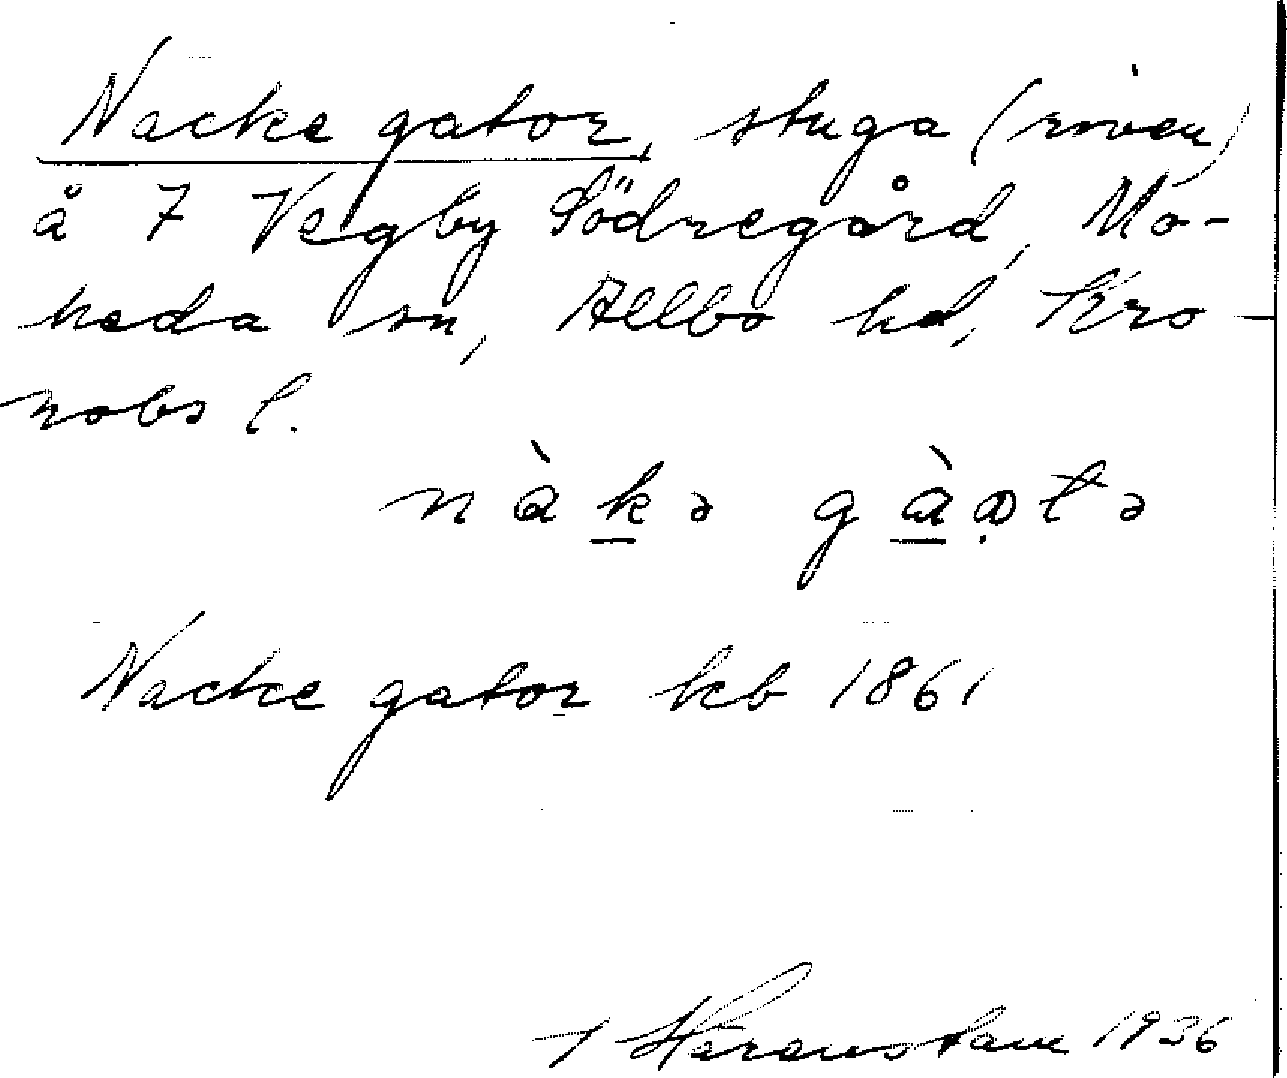 Nacke gator, stuga (riven)
å 7 Vegby Södregård, Mo-
heda sn, Allbo hd, Kro-
nobs l.
nàkə gàɒtə
Nacke gator kb 1861
Häranstam 1936